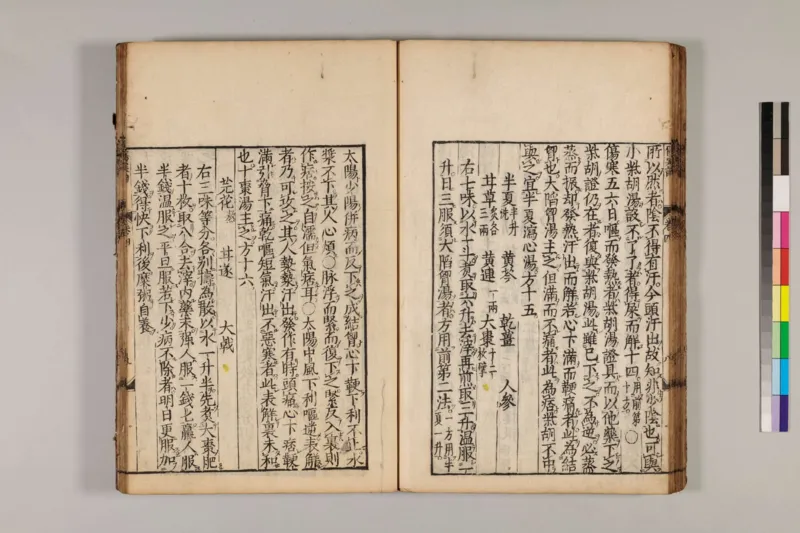 所以然者陰不得有汗今頭汗出故知非少陰也可與
小柴胡湯設不了了者得屎而解十四用前第十方〇
傷寒五六日嘔而發熱者柴胡湯證具而以他藥下之
柴胡證仍在者復與柴胡湯此雖已下之不為逆必蒸
蒸而振却發熱汗出而解若心下滿而鞕痛者此為結
胷也大陷胷湯主之但滿而不痛者此為痞柴胡不中
與之宜半夏瀉心湯方十五
半夏半升洗 黄芩 乾薑 人參
甘草炙各三兩 黄連一兩 大棗十二枚擘
右七味以水一斗煮取六升去滓再煎取三升温服一
升日三服須大陷胷湯者方用前第二法一方用半夏一升
太陽少陽併病而反下之成結胷心下鞕下利不止水
漿不下其人心煩〇脉浮而緊而復下之緊反入裏則
作痞按之自濡但氣痞耳〇太陽中風下利嘔逆表解
者乃可攻之其人漐漐汗出發作有時頭痛心下痞鞕
滿引脅下痛乾嘔短氣汗出不惡寒者此表解裏未和
也十棗湯主之方十六
芫花熬 甘遂 大戟
右三味等分各別擣為散以水一升半先煮大棗肥
者十枚取八合去滓內藥末強人服一錢匕羸人服
半錢温服之平旦服若下少病不除者明日更服加
半錢得快下利後糜粥自養